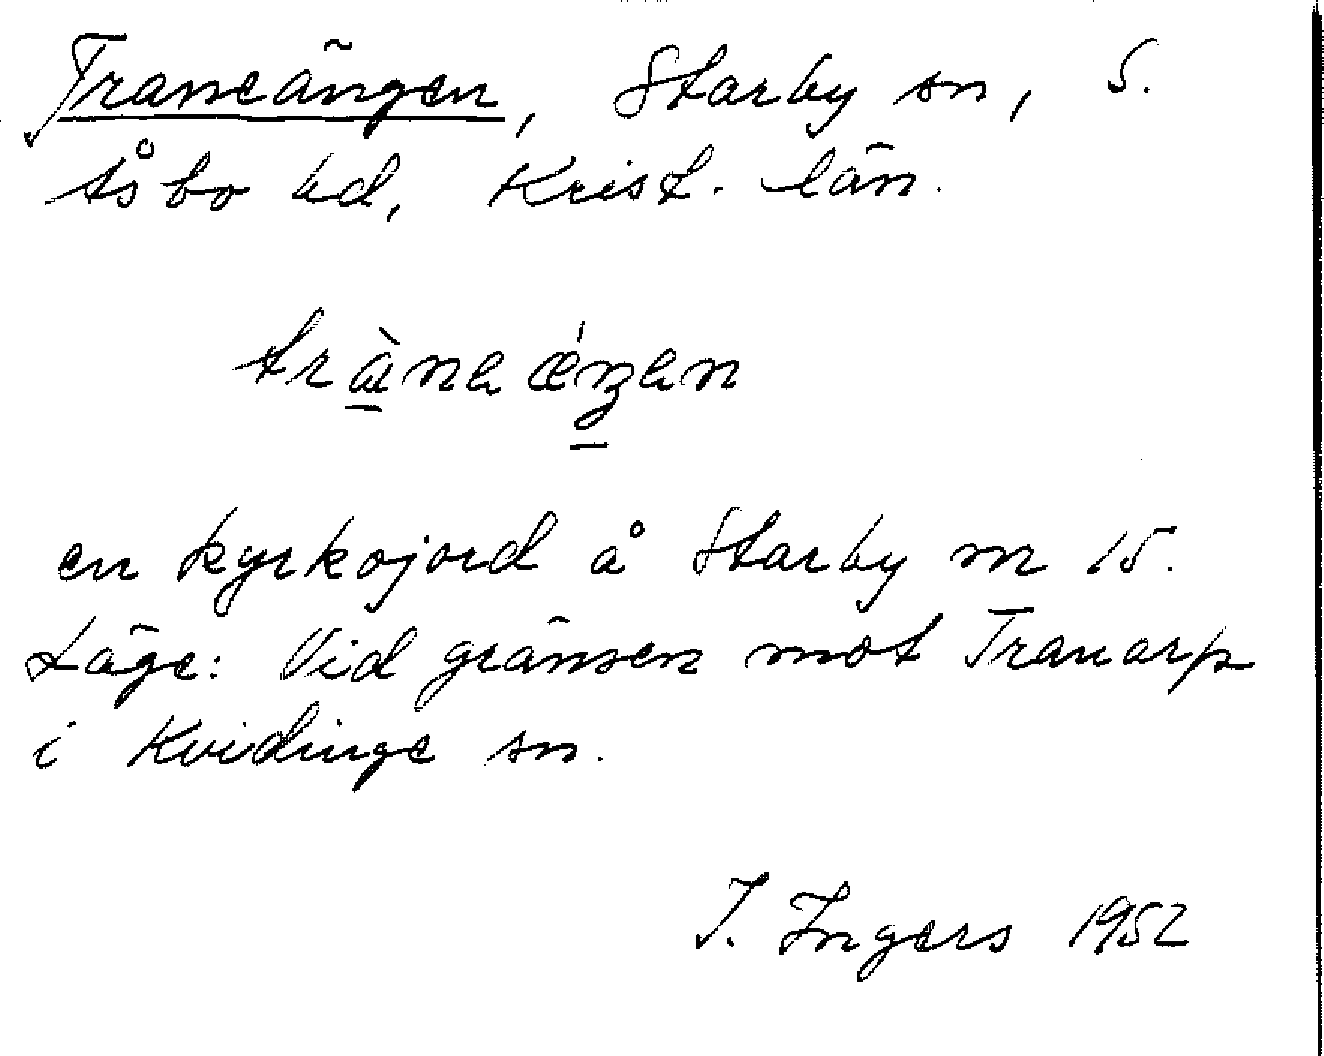 Traneängen, Starby sn, S.
Åsbo hd, Krist. län.
trànaǽŋan
en kyrkojord å Starby nr 15.
Läge: Vid gränsen mot Tranarp
i Kvidinge sn.
I. Ingers 1952